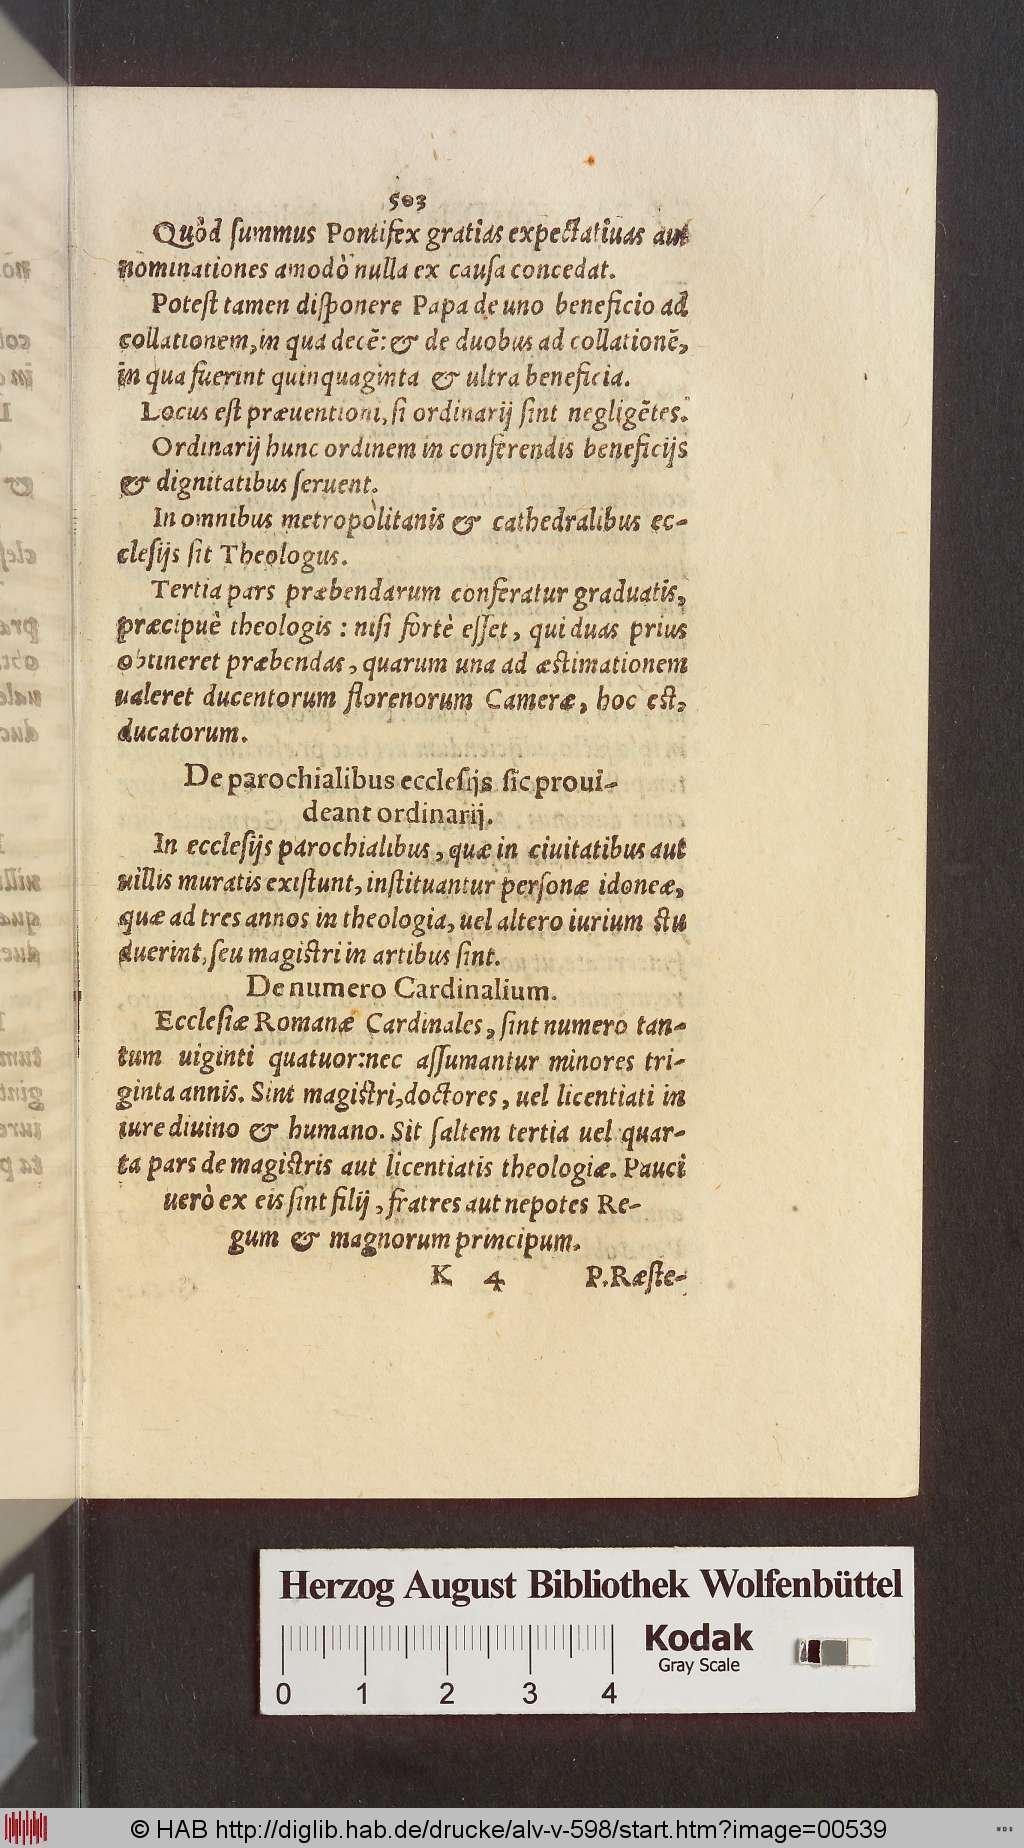 503
Quòd ſummus Pontifex gratias expectatiuas aut
nominationes amodò nulla ex cauſa concedat.
Poteſt tamen diſponere Papa de uno beneficio ad
collationem, in qua decē: & de duobus ad collationē,
in qua fuerint quinquaginta & ultra beneficia.
Locus eſt præuentioni, ſi ordinarij ſint negligētes.
Ordinarij hunc ordinem in conferendis beneficijs
& dignitatibus ſeruent.
In omnibus metropòlitanis & cathedralibus ec-
cleſijs ſit Theologus.
Tertia pars præbendarum conferatur graduatis,
præcipuè theologis : niſi fortè eſſet, qui duas prius
obtineret præbendas, quarum una ad æſtimationem
ualeret ducentorum florenorum Cameræ, hoc eſt,
ducatorum.
De parochialibus eccleſijs ſic proui-
deant ordinarij.
In eccleſijs parochialibus, quæ in ciuitatibus aut
uillis muratis exiſtunt, inſtituantur perſonæ idoneæ,
quæ ad tres annos in theologia, uel altero iurium ſtu
duerint, ſeu magiſtri in artibus ſint.
De numero Cardinalium.
Eccleſiæ Romanæ Cardinales, ſint numero tan-
tum uiginti quatuor: nec aſſumantur minores tri-
ginta annis. Sint magiſtri, doctores, uel licentiati in
iure diuino & humano. Sit ſaltem tertia uel quar-
ta pars de magiſtris aut licentiatis theologiæ. Pauci
uerò ex eis ſint filij, fratres aut nepotes Re-
gum & magnorum principum.
K 4 P. Ræſte-
Herzog August Bibliothek Wolfenbüttel
Kodak
Gray Scale
0 1 2 3 4
© HAB http://diglib.hab.de/drucke/alv-v-598/start.htm?image=00539